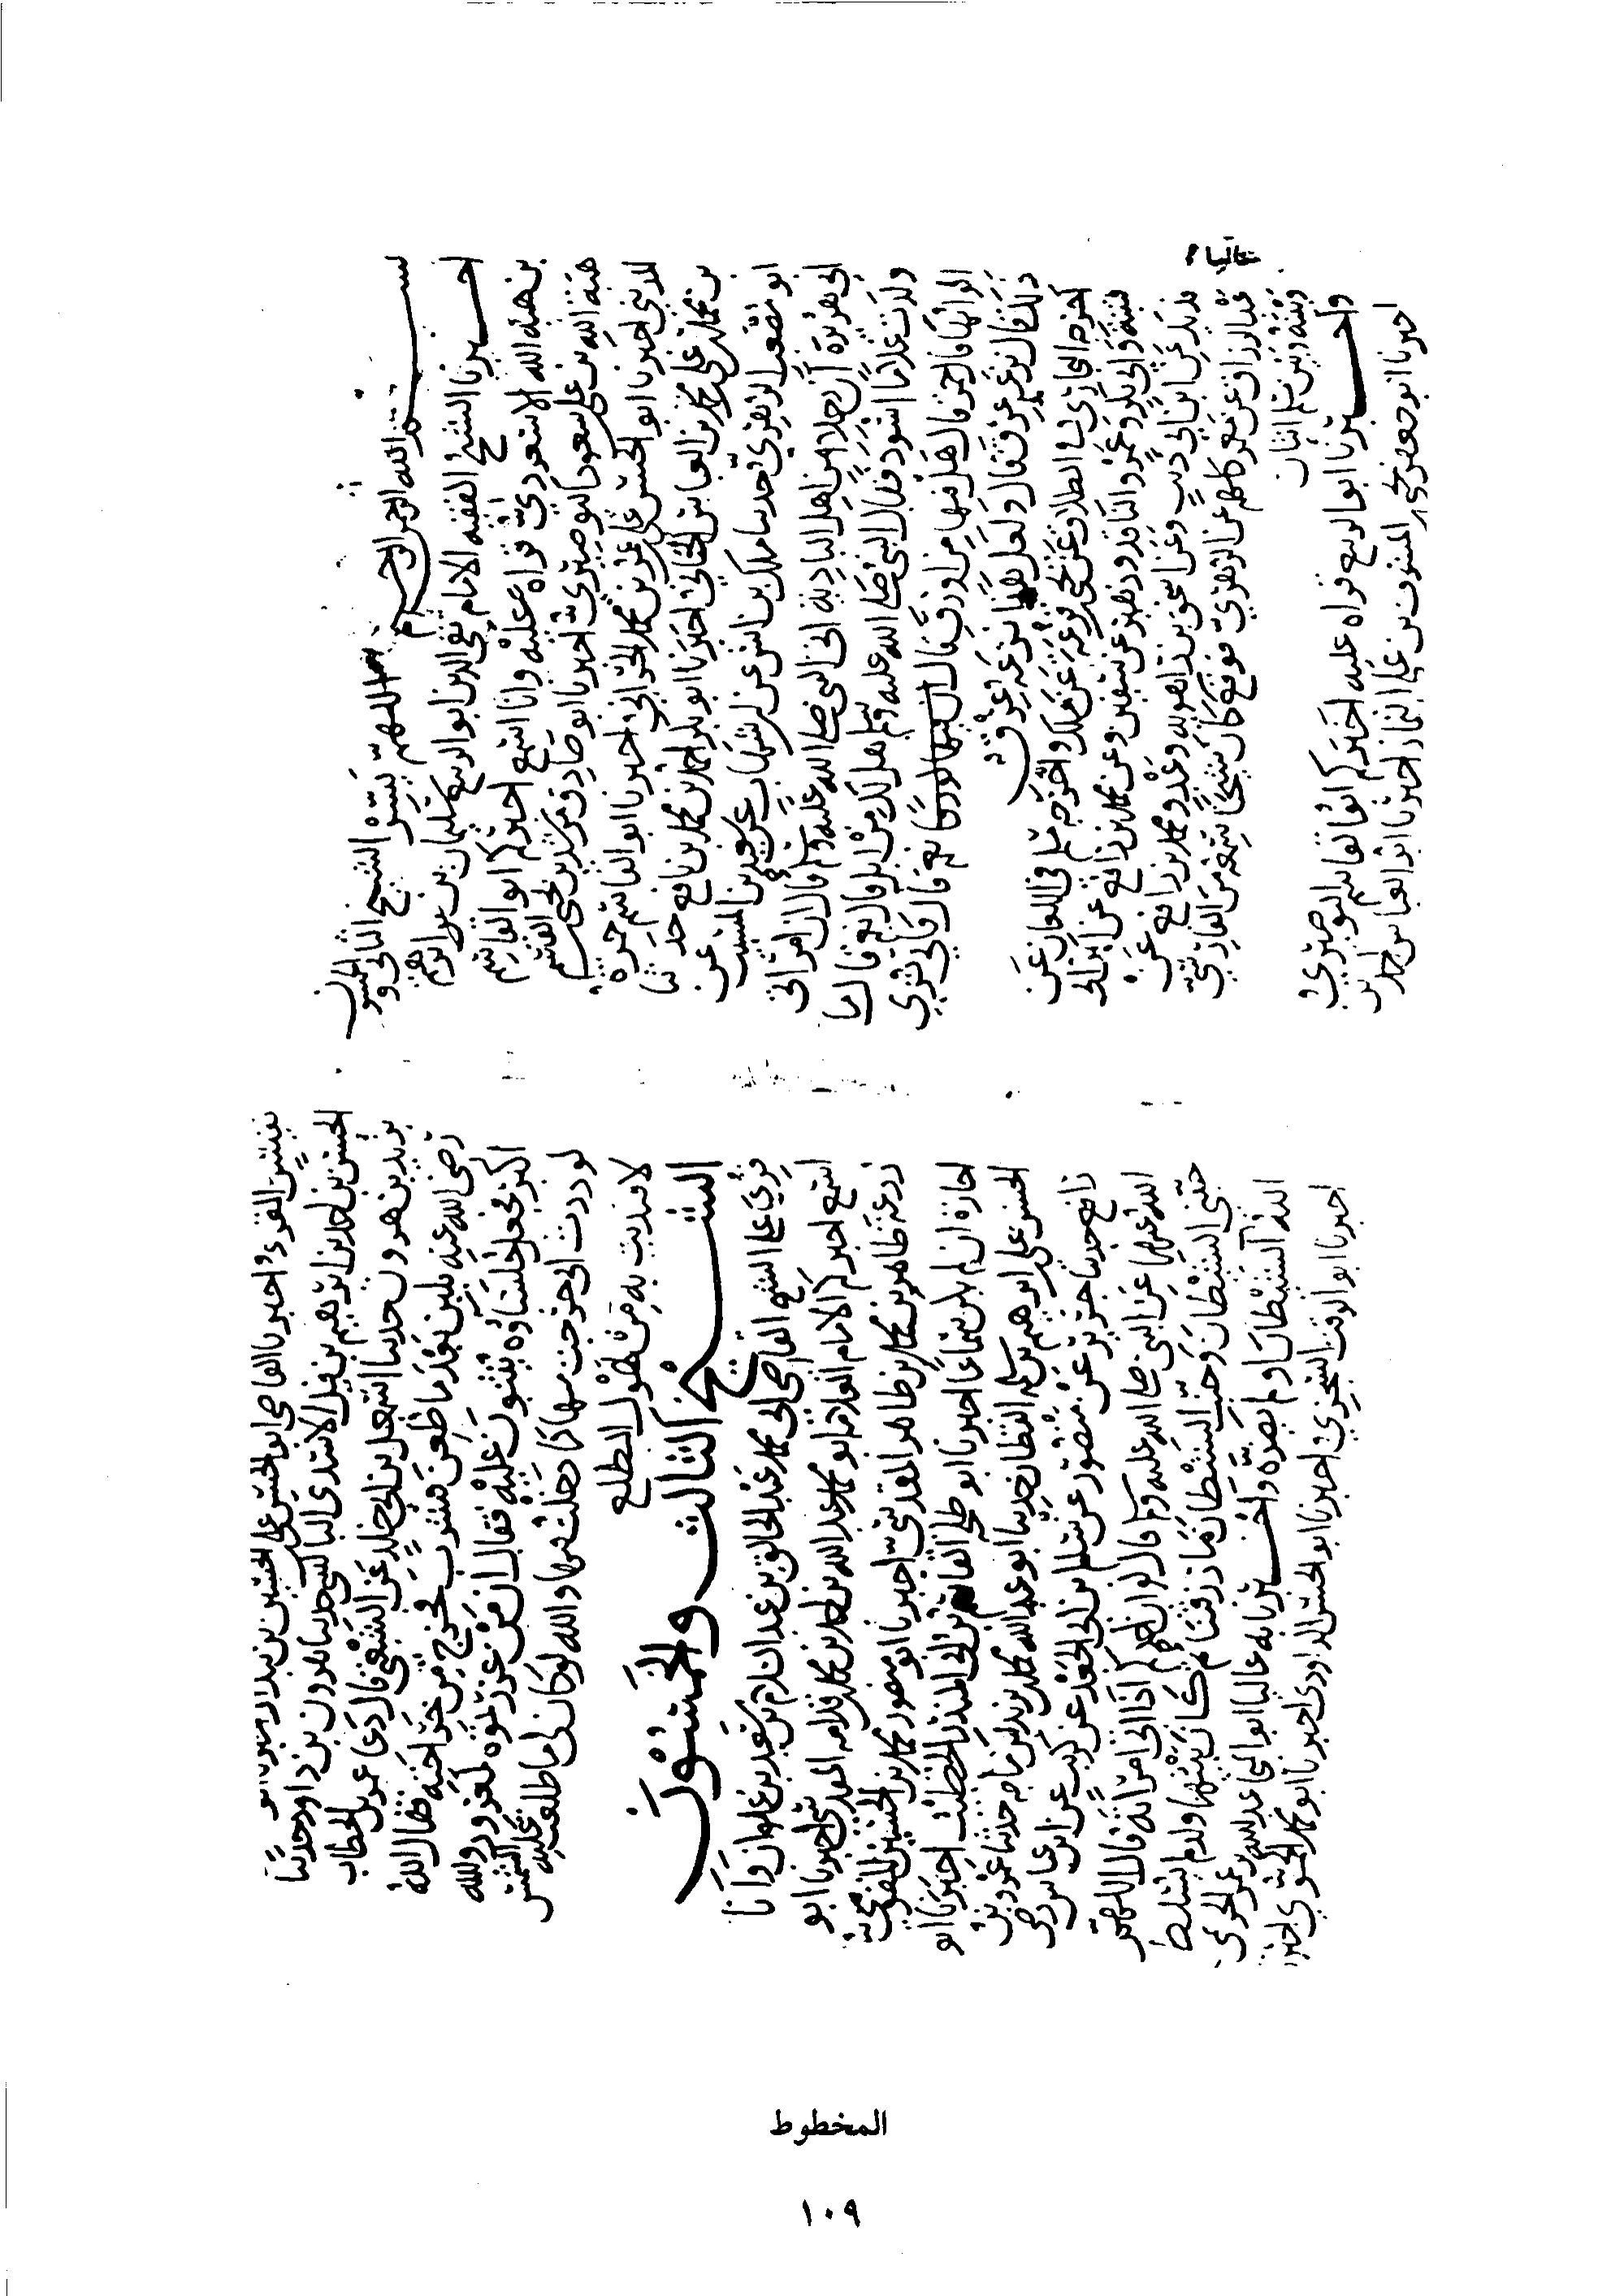 بسم الله الرحمن الرحيم اللهم يسر الشيخ الثاني والخمسون
اخبرنا الشيخ الفقيه الامام تقي الدين ابو الربيع سليمان بن ابراهيم
بن هبة الله الاسعردي قراه عليه وانا اسمع اخبركم ابو القاسم
هبة الله بن علي بن سعود البوصيري اخبرنا ابو صادق مرشد بن يحيى بن القسم
المديني اخبرنا ابو الحسن علي بن عمر بن محمد الحراني اخبرنا ابو القاسم حمزة
بن محمد بن علي بن محمد بن العباس الكناني اخبرنا ابو بكر احمد بن محمد بن نافع حدثنا
ابو مصعب الزهري حدثنا ملك بن انس عن ابن شهاب عن سعيد بن المسيب عن
ابي هريرة ان رجلا من اهل البادية اتى النبي صلى الله عليه وسلم قال ان امراتي
ولدت غلاما اسود فقال النبي صلى الله عليه وسلم هل لك من ابل قال نعم قال ما
الوانها قال حمر قال هل فيها من اورق قال ان فيها لورقا نعم قال فاني تري
ذلك قال نزعه عرق قال ولعل هذا نزعه عرق
اخرجه البخاري في الطلاق عن يحيى بن قزعة عن ملك واخرجه مسلم في اللعان عن
قتيبة وابي بكر وعمرو الناقد وزهير عن سفين وعن محمد بن رافع عن ابن ابي
فديك عن ابن ابي ذيب وعن اسحق بن راهويه وعبد ومحمد بن رافع عن
عبد الرزاق عن معمر كلهم عن الزهري فوقع كان شيخا سمعه من الفارسي
وبينه وبين مسلم اثنان
عاليا
واخبرنا ابو الربيع قراه عليه اخبركم ابو القاسم البوصيري
اخبرنا ابو جعفر يحيى بن المشرف بن علي التمار اخبرنا ابو العباس احمد بن
نفيس المقرئ واخبرنا القاضي ابو الحسن علي بن الحسين بن بندار
الحسن بن احمد بن ابرهيم بن فيل الاسدي البالسي حدثنا هرون بن داود حدثنا
يزيد بن هرون حدثنا اسمعيل بن ابي خلد عن الشعبي قال دعا عمر بن الخطاب
رضي الله عنه بلبن بعد ما طعن فشرب فخرج من جراحته فقال الله
اكبر فجعل جلساؤه يثنون عليه فقال ان من غررتموه لمغرور والله
لوددت اني خرجت منها كما دخلت فيها والله لو كان لي ما طلعت عليه الشمس
لافتديت به من هول المطلع
الشيخ الثالث والخمسون
قرئ على الشيخ القاضي ابي محمد عبد الخالق بن عبد السلام بن سعيد بن علوان وانا
اسمع اخبركم الامام العلامة ابو محمد عبد الله بن احمد بن محمد بن قدامه المقدسي اخبرنا ابو
زرعة طاهر بن محمد بن طاهر المقدسي اخبرنا ابو منصور محمد بن الحسين المقومي
اجازة ان لم يكن سماعا اخبرنا ابو طلحة القاسم بن ابي المنذر الخطيب اخبرنا ابو
الحسن علي بن ابرهيم بن سلمة القطان حدثنا ابو عبد الله محمد بن يزيد بن ماجه حدثنا عمرو بن
رافع حدثنا جرير عن منصور عن سالم بن ابي الجعد عن كريب عن ابن عباس رضي
الله عنهما عن النبي صلى الله عليه وسلم قال لو ان احدكم اذا اتى امراته قال اللهم
جنبني الشيطان وجنب الشيطان ما رزقتنا ثم كان بينهما ولد لم يسلط
الله الشيطان او لم يضره واخبرنا به عاليا ابو المنجا عبد الله بن عمر الحريمي
اخبرنا ابو الوقت السجزي اخبرنا ابو الحسن الداودي اخبرنا ابو محمد الحموي اخبرنا
المخطوط
١٠٩